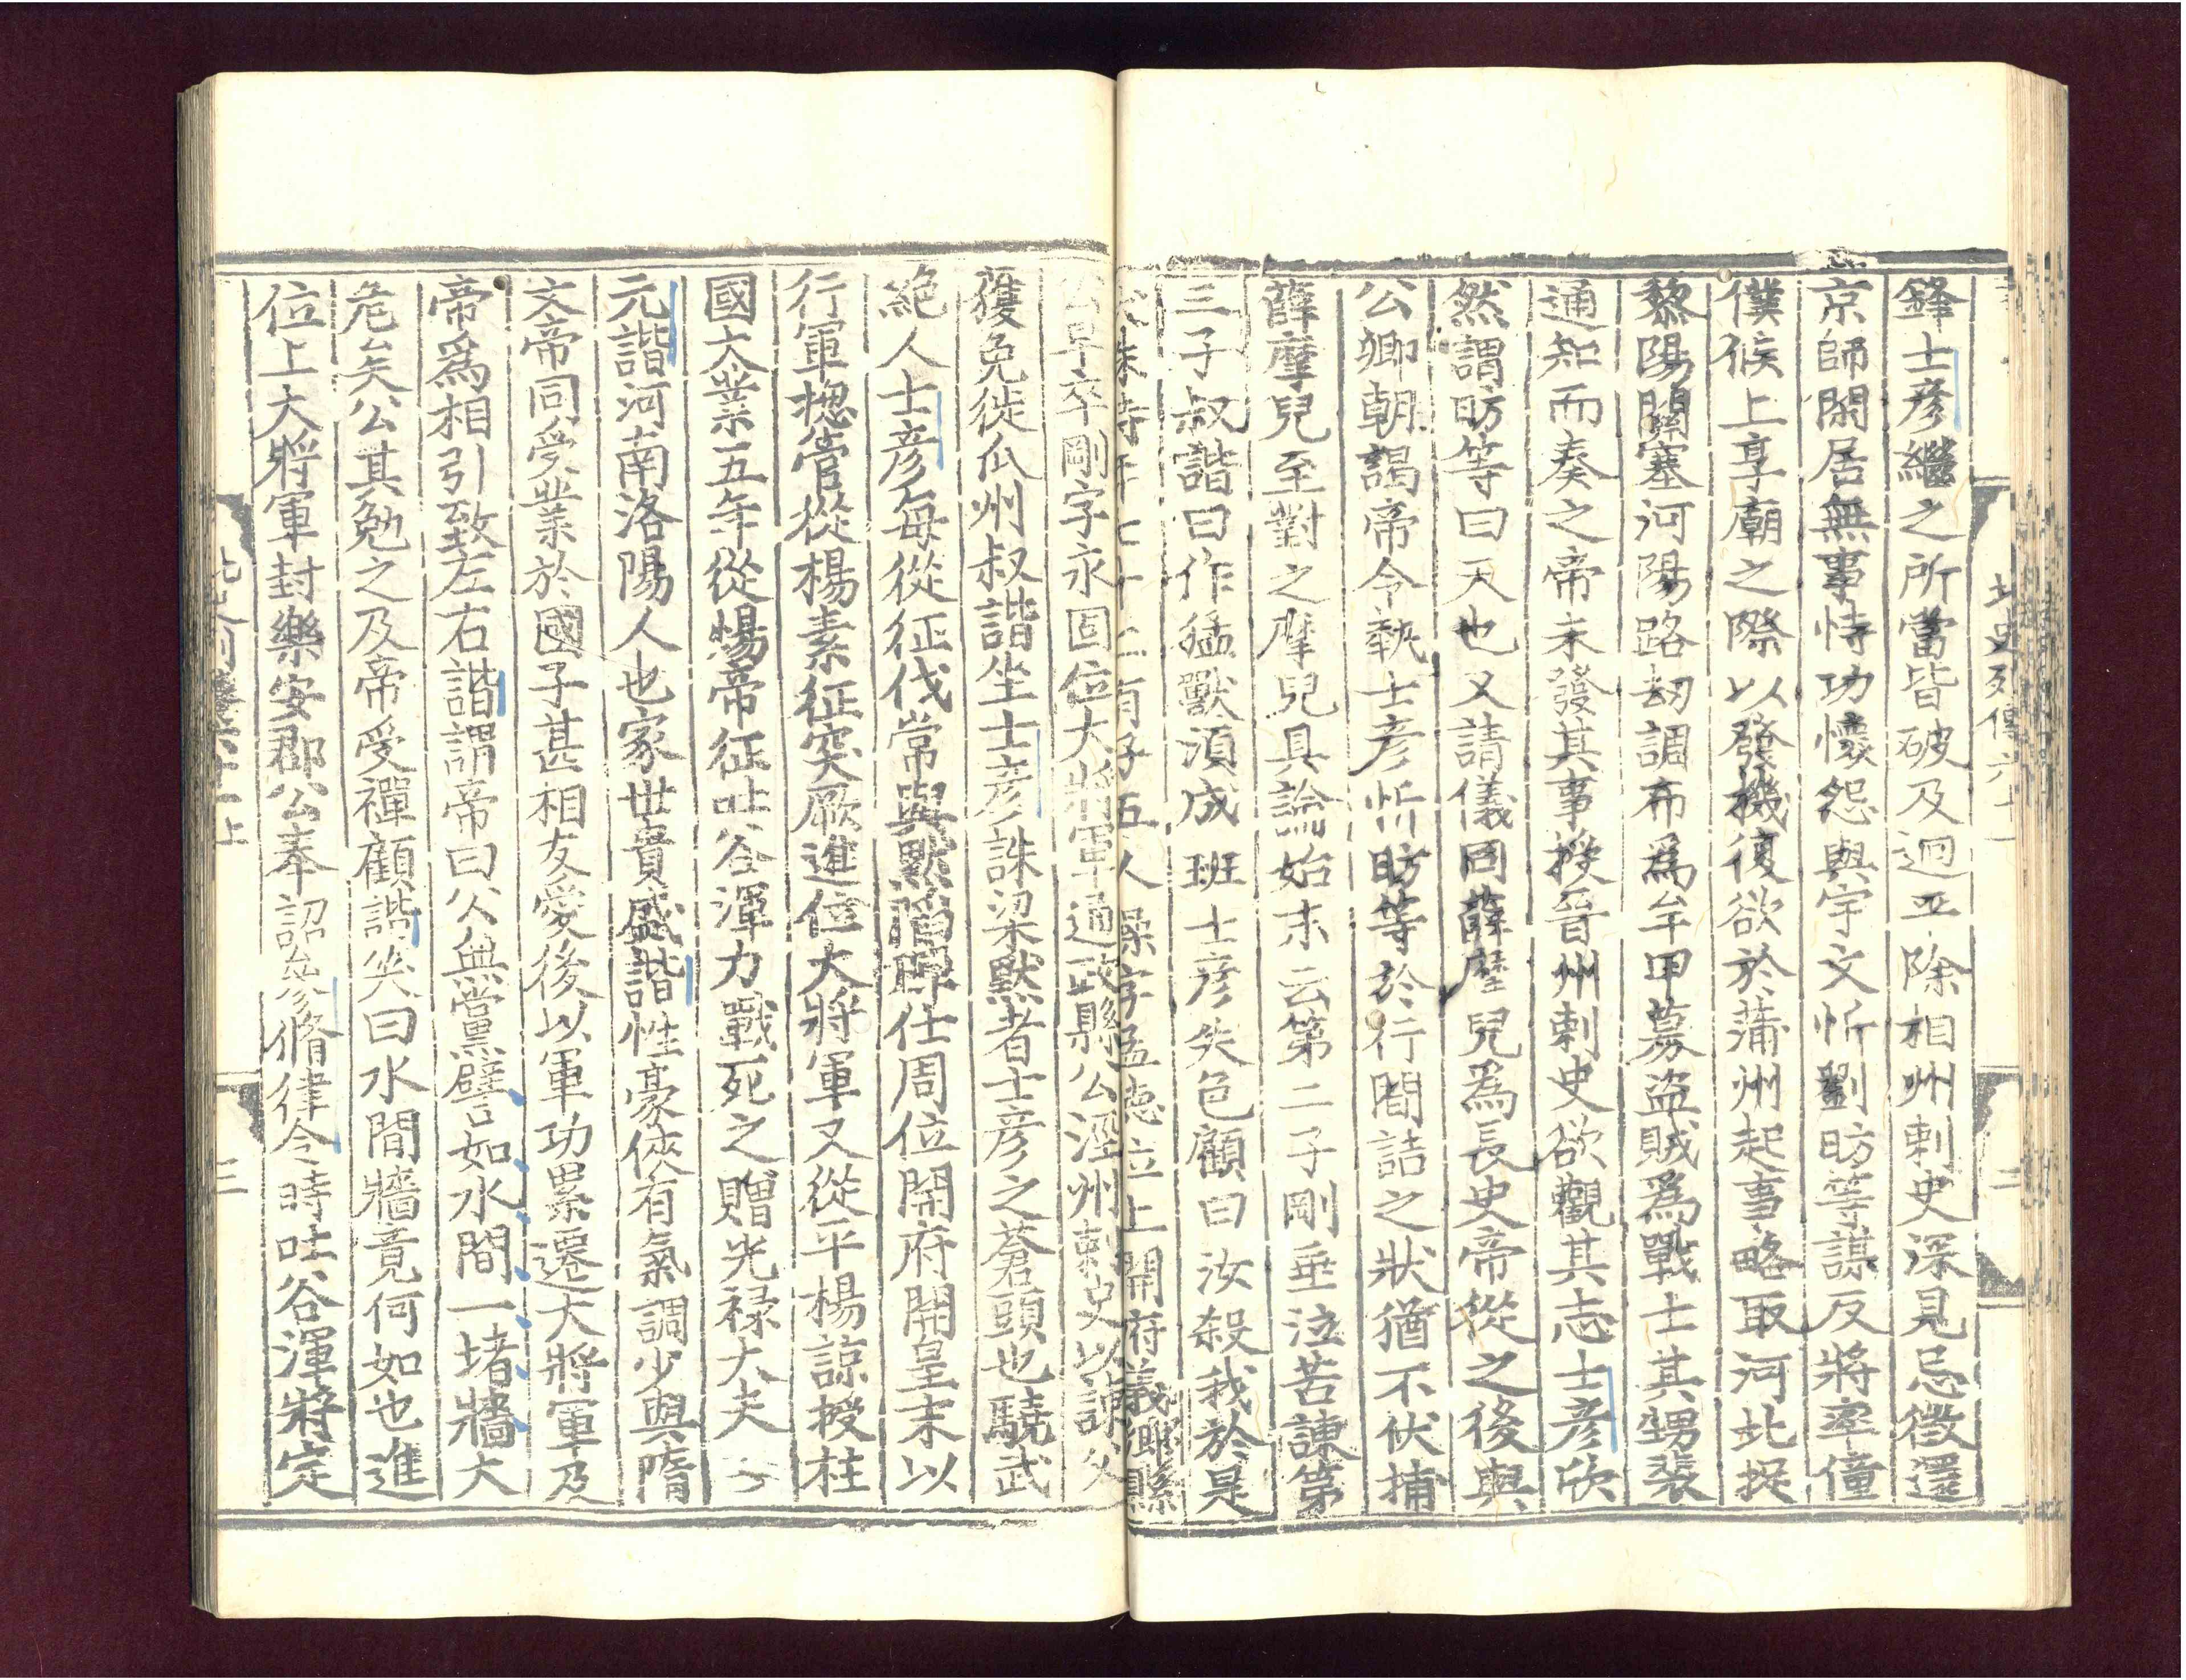 北史列傳六十一
二
鋒士彦繼之所當皆破及迥平除相州刺史深見忌徵還
京師閑居無事恃功懷怨與宇文忻劉昉等謀反將率僮
僕候上享廟之際以發機復欲於蒲州起事略取河北捉
黎陽關塞河陽路刼調布爲牟甲募盜賊爲戰士其甥裴
通知而奏之帝未發其事授晉州刺史欲觀其志士彦欣
然謂昉等曰天也又請儀同薛摩兒爲長史帝從之後與
公卿朝謁帝令執士彦忻昉等於行間詰之狀猶不伏捕
薛摩兒至對之摩兒具論始末云第二子剛垂泣苦諫第
三子叔諧曰作猛獸湏成班士彦失色顧曰汝殺我於是
伏誅時年七十二有子五人操字孟德位上開府義鄉縣
公早卒剛字永固位大將軍通政縣公涇州刺史以諫父
獲免徙瓜州叔諧坐士彦誅梁默者士彦之蒼頭也驍武
絶人士彦每從征伐常與默陷陣仕周位開府開皇末以
行軍揔管從楊素征突厥進位大將軍又從平楊諒授柱
國大業五年從煬帝征吐谷渾力戰死之贈光禄大夫
元諧河南洛陽人也家世貴盛諧性豪俠有氣調少與隋
文帝同受業於國子甚相友愛後以軍功累遷大將軍及
帝爲相引致左右諧謂帝曰公無黨譬如水間一堵牆大
危矣公其勉之及帝受禪顧諧笑曰水間牆竟何如也進
位上大將軍封樂安郡公奉詔參脩律令時吐谷渾將定
三